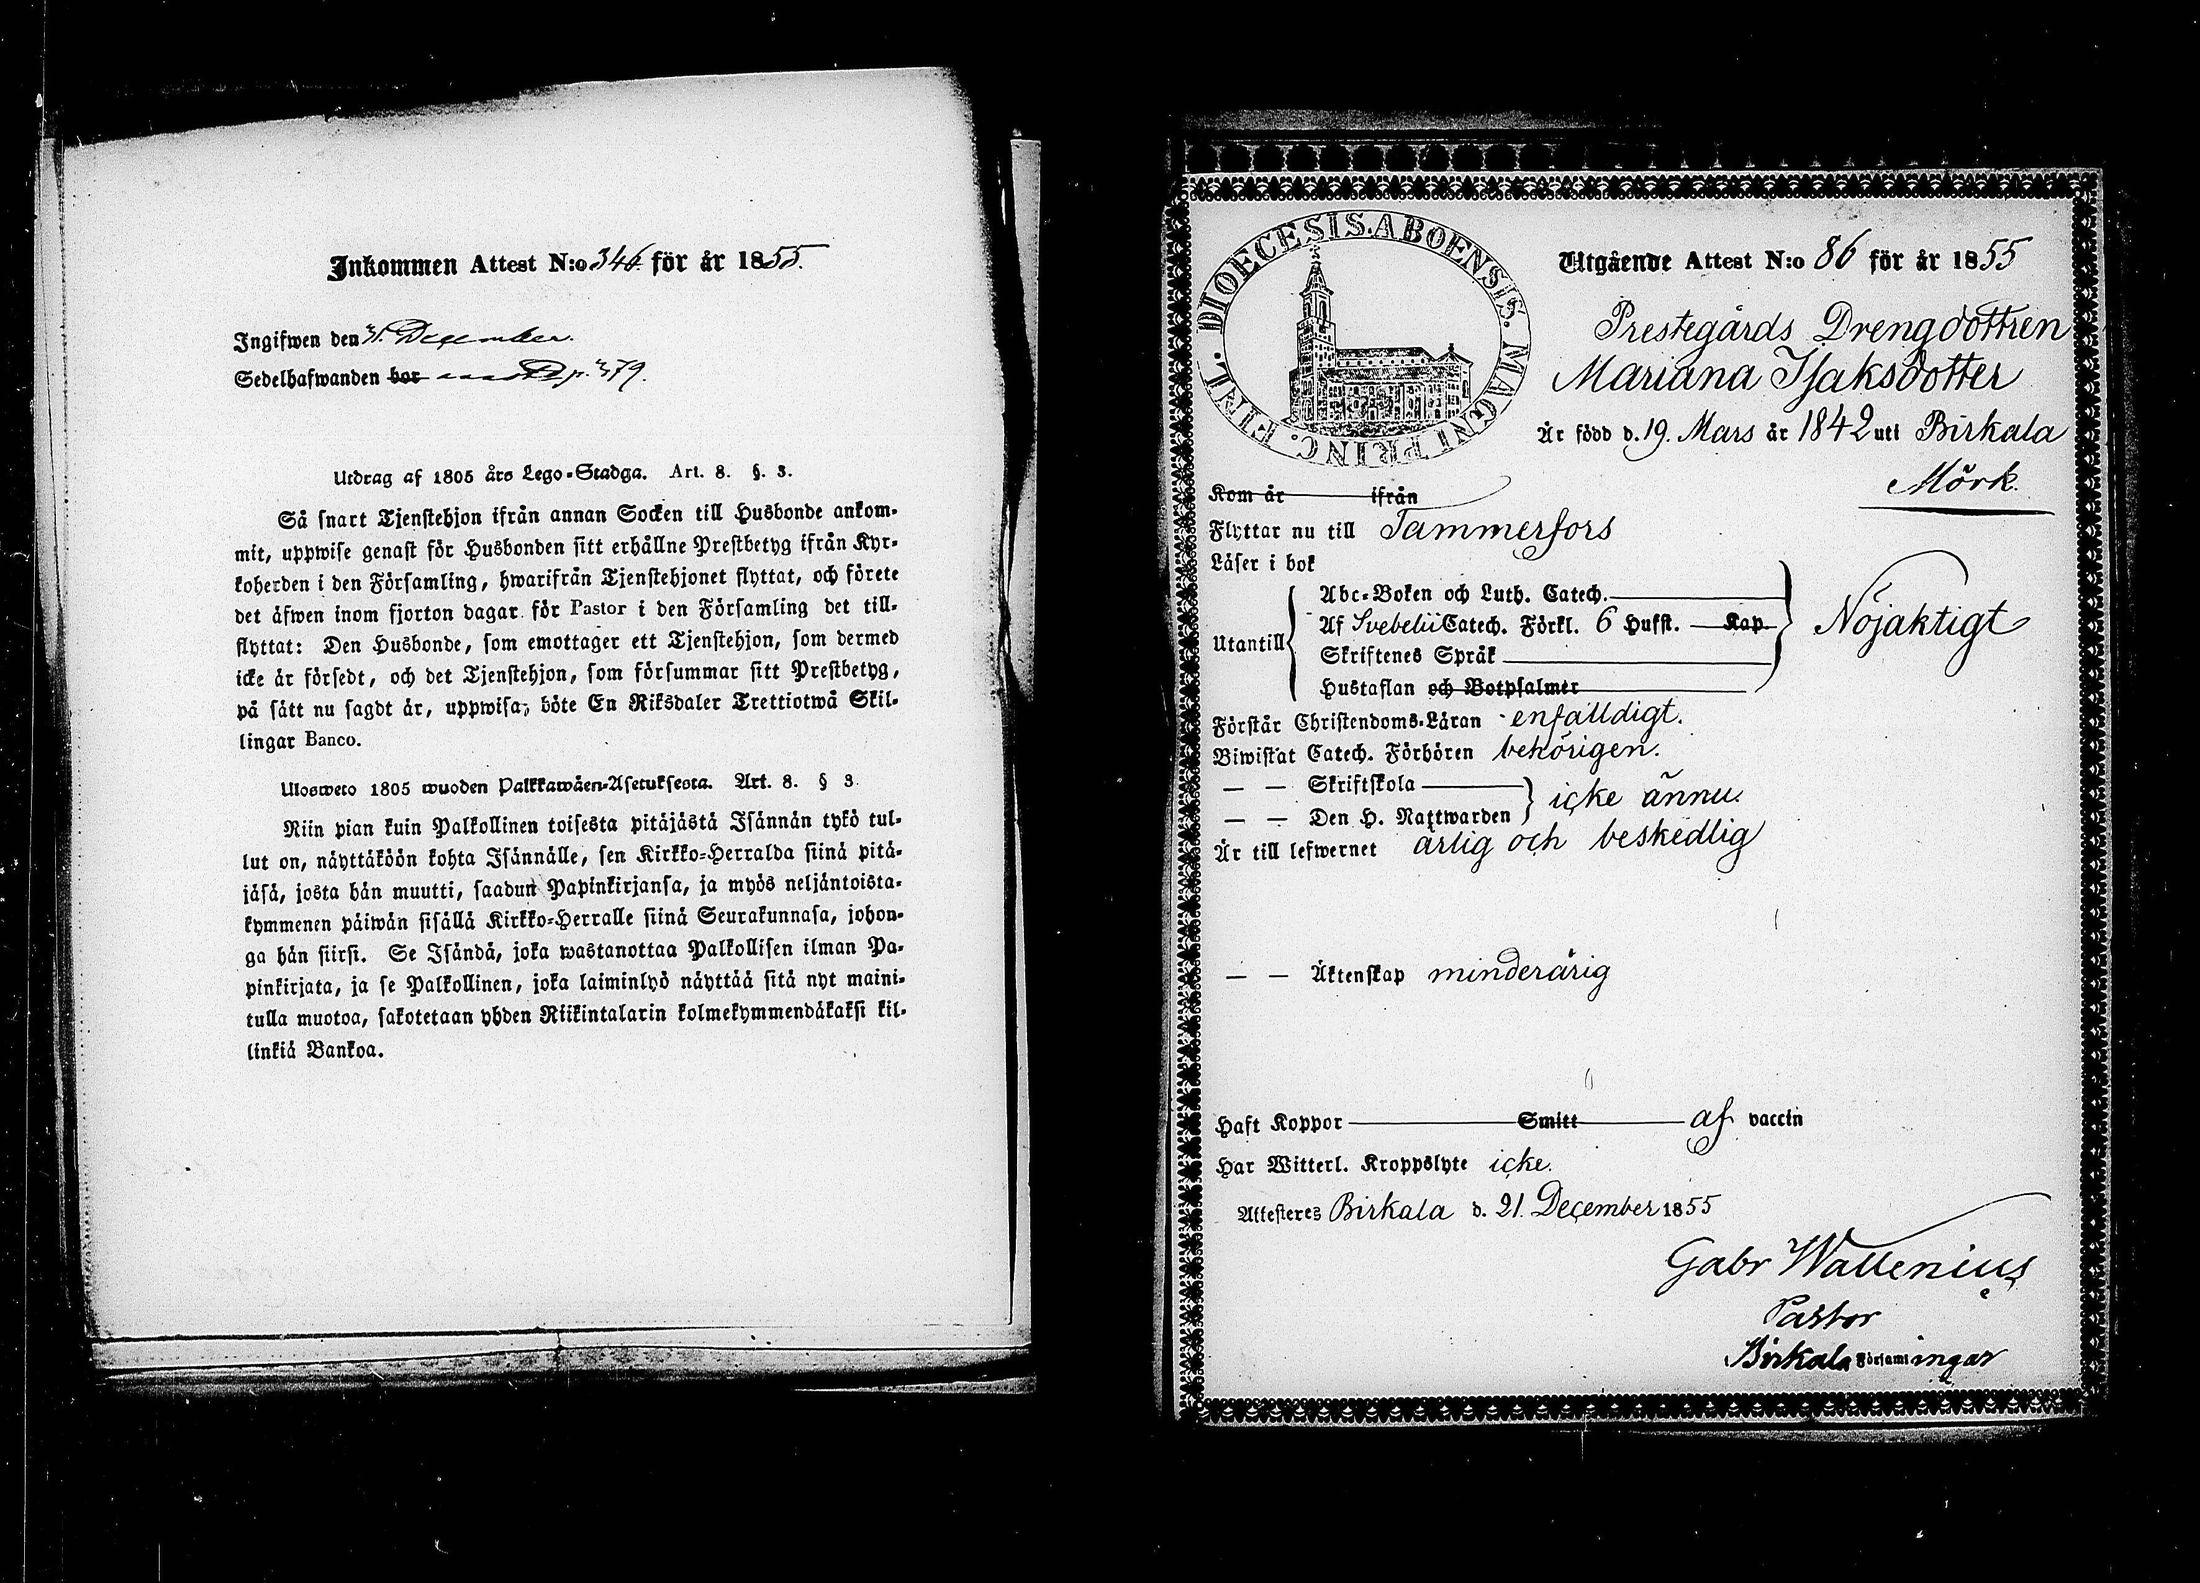 Inkommen Attest N:o 346. för år 1855.
Ingifwen den 31. December.
Sedelhafwanden bor p. 379.
Utdrag af 1805 års Lego-Stadga. Art. 8. §. 3.
Så snart Tjenstehjon ifrån annan Socken till Husbonde ankom-
mit, uppwise genast för Husbonden sitt erhållne Prestbetyg ifrån Kyr-
koherden i den Församling, hwarifrån Tjenstehjonet flyttat, och förete
det äfwen inom fjorton dagar för Pastor i den Församling det till-
flyttat: Den Husbonde, som emottager ett Tjenstehjon, som dermed
icke är försedt, och det Tjenstehjon, som försummar sitt Prestbetyg,
på sätt nu sagdt är, uppwisa, böte En Riksdaler Trettiotwå Skil-
lingar Banco.
Ulosweto 1805 wuoden Palkkawäen-Asetuksesta. Art. 8. § 3.
Niin pian kuin Palkollinen toisesta pitäjästä Isännän tykö tul-
lut on, näyttäköön kohta Isännälle, sen Kirkko-Herralda siinä pitä-
jäsä, josta hän muutti, saadun Papinkirjansa, ja myös neljäntoista-
kymmenen päiwän sisällä Kirkko-Herralle siinä Seurakunnasa, johon-
ga hän siirsi. Se Isändä, joka wastanottaa Palkollisen ilman Pa-
pinkirjata, ja se Palkollinen, joka laiminlyö näyttää sitä nyt maini-
tulla muotoa, sakotetaan yhden Riikintalarin kolmekymmendäkaksi kil-
linkiä Bankoa.
FINL. DIOECESIS. ABOENSIS. MAGNI PRINC.
Utgående Attest N:o 86 för år 1855
Prestegårds Drengdottren
Mariana Isaksdotter
Är född d. 19. Mars år 1842 uti Birkala
Mörk.
Kom år ifrån
Flyttar nu till Tammerfors
Läser i bok
Utantill
Abc-Boken och Luth. Catech.
Af Svebelii Catech. Förkl. 6 Hufst. Kap.
Skriftenes Språk
Hustaflan och Botpsalmer
Nöjaktigt
Förstår Christendoms-Läran enfalldigt.
Biwistat Catech. Förhören behörigen.
— — Skriftskola
— — Den H. Nattwarden
icke ännu.
Är till lefwernet ärlig och beskedlig
— — Äktenskap minderårig
Haft Koppor Smitt af vaccin
Har Witterl. Kroppslyte icke.
Attesteres Birkala d. 21. December 1855
Gabr Wallenius
Pastor
i Birkala Församlingar